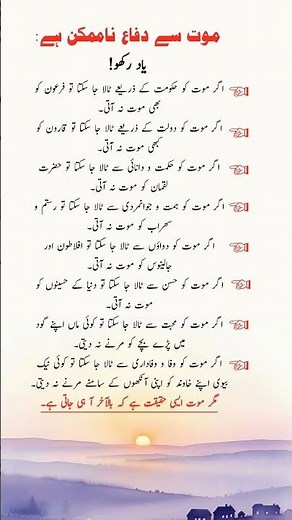 موت سے دفاع ناممکن ہے:
یاد رکھو!
اگر موت کو حکومت کے ذریعے ٹالا جا سکتا تو فرعون کو
بھی موت نہ آتی۔
اگر موت کو دولت کے ذریعے ٹالا جا سکتا تو قارون کو
کبھی موت نہ آتی۔
اگر موت کو حکمت و دانائی سے ٹالا جا سکتا تو حضرت
لقمان کو موت نہ آتی۔
اگر موت کو ہمت و جوانمردی سے ٹالا جا سکتا تو رستم و
سحراب کو موت نہ آتی۔
اگر موت کو دواؤں سے ٹالا جا سکتا تو افلاطون اور
جالینوس کو موت نہ آتی۔
اگر موت کو حسن سے ٹالا جا سکتا تو دنیا کے حسینوں کو
موت نہ آتی۔
اگر موت کو محبت سے ٹالا جا سکتا تو کوئی ماں اپنے گود
میں پڑے بچے کو مرنے نہ دیتی۔
اگر موت کو وفا و وفاداری سے ٹالا جا سکتا تو کوئی نیک
بیوی اپنے خاوند کو اپنی آنکھوں کے سامنے مرنے نہ دیتی۔
مگر موت ایسی حقیقت ہے کہ بالآخر آ ہی جاتی ہے۔